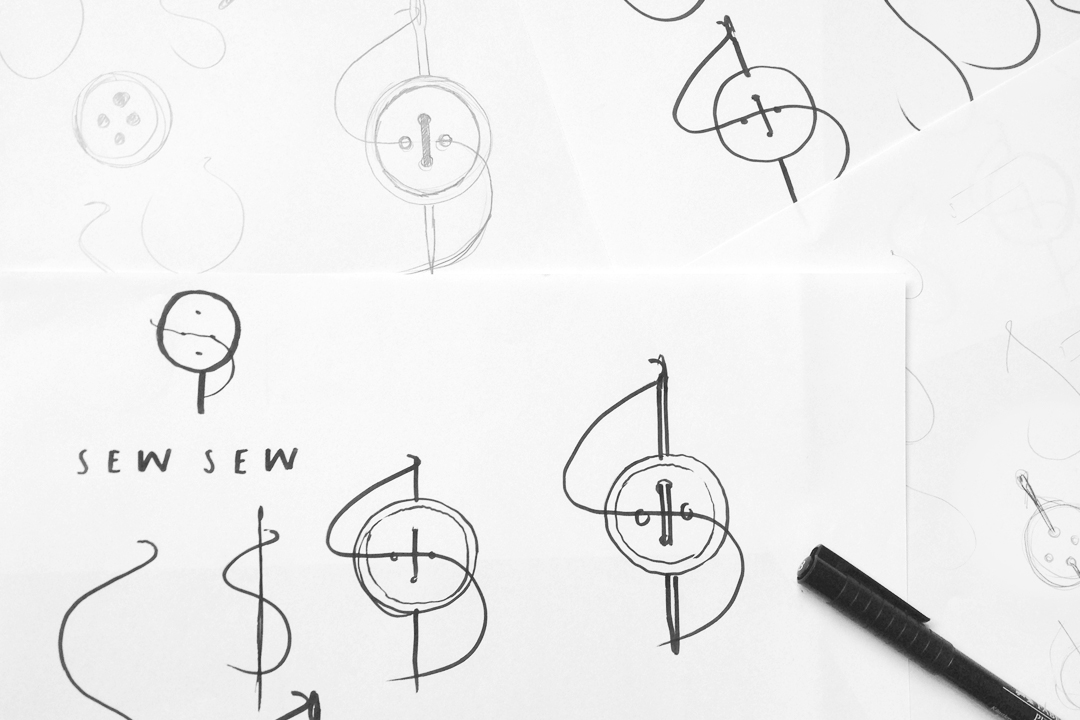 SEW SEW